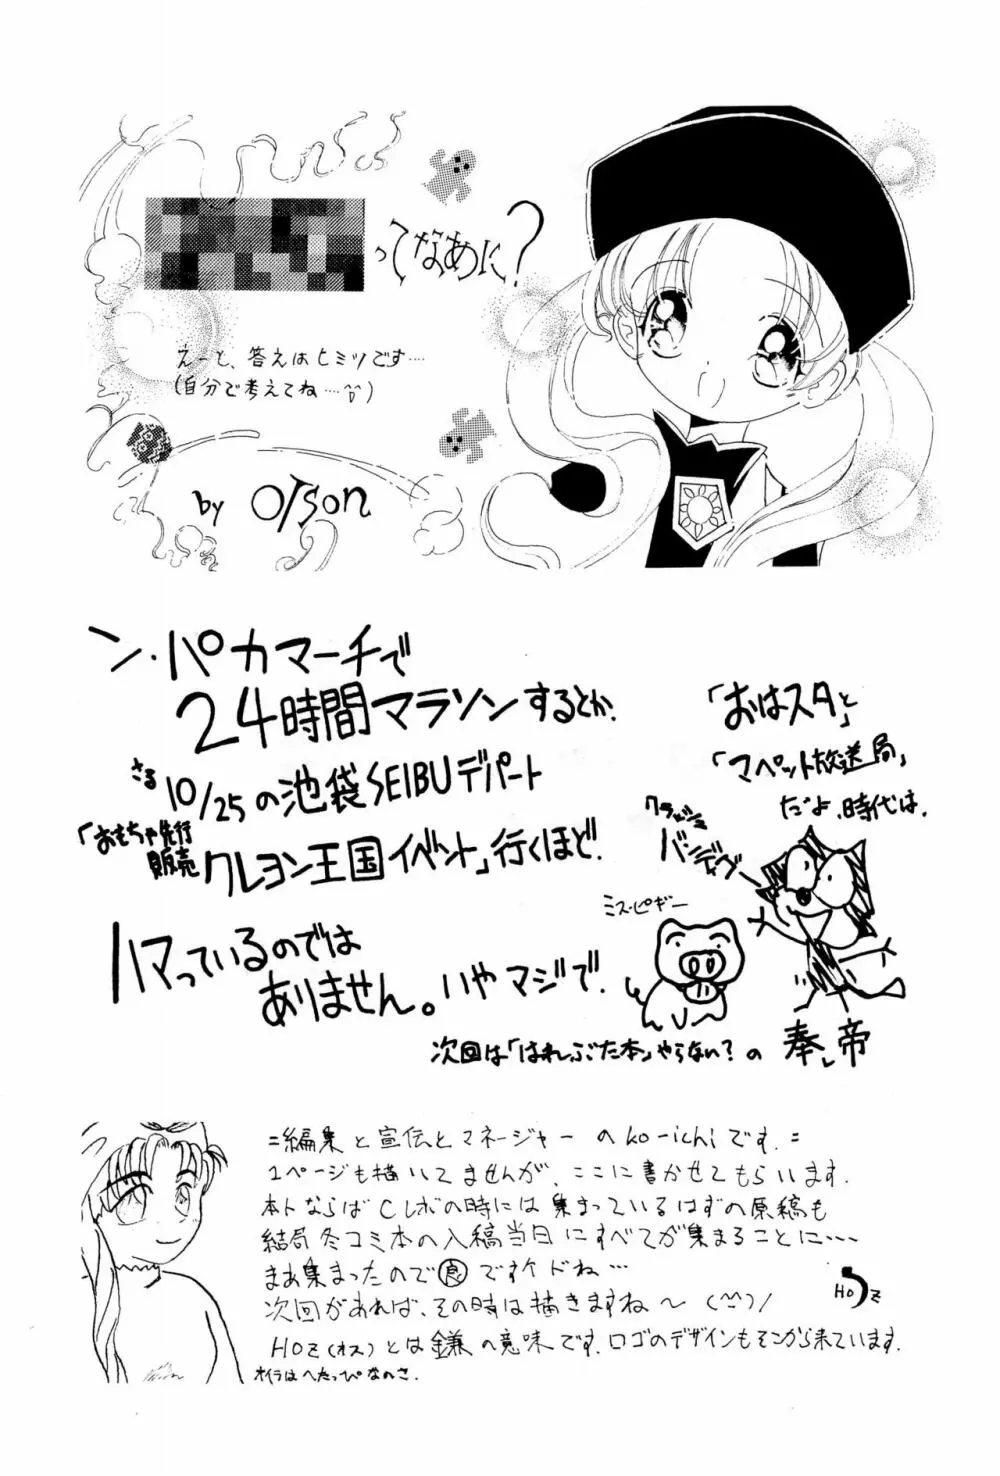 ってなあに?
えーと、答えはヒミツです…
(自分で考えてね…^^;)
by OTson
ン・パカマーチで
24時間マラソンするとか.
さる
10/25の池袋SEIBUデパート
「おもちゃ先行
販売
クレヨン王国イベント」行くほど.
ハマっているのでは
ありません。いやマジで.
「おはスタと」
「マペット放送局」
だよ、時代は.
クラッシュ
バンディグー
ミス・ピギー
次回は「はれぶた本」やらない?の 奉帝
=編集と宣伝とマネージャーのko-ichiです.=
1ページも描いてませんが、ここに書かせてもらいます.
本トならばCレボの時には集まっているはずの原稿も
結局冬コミ本の入稿当日にすべてが集まることに‥‥
まあ集まったので良ですけドね…
次回があれば、その時は描きますね〜 (^^)/
HOZ
HOZ(オス)とは鎌の意味です.ロゴのデザインもそこから来ています.
オイラはへたっぴなのさ.